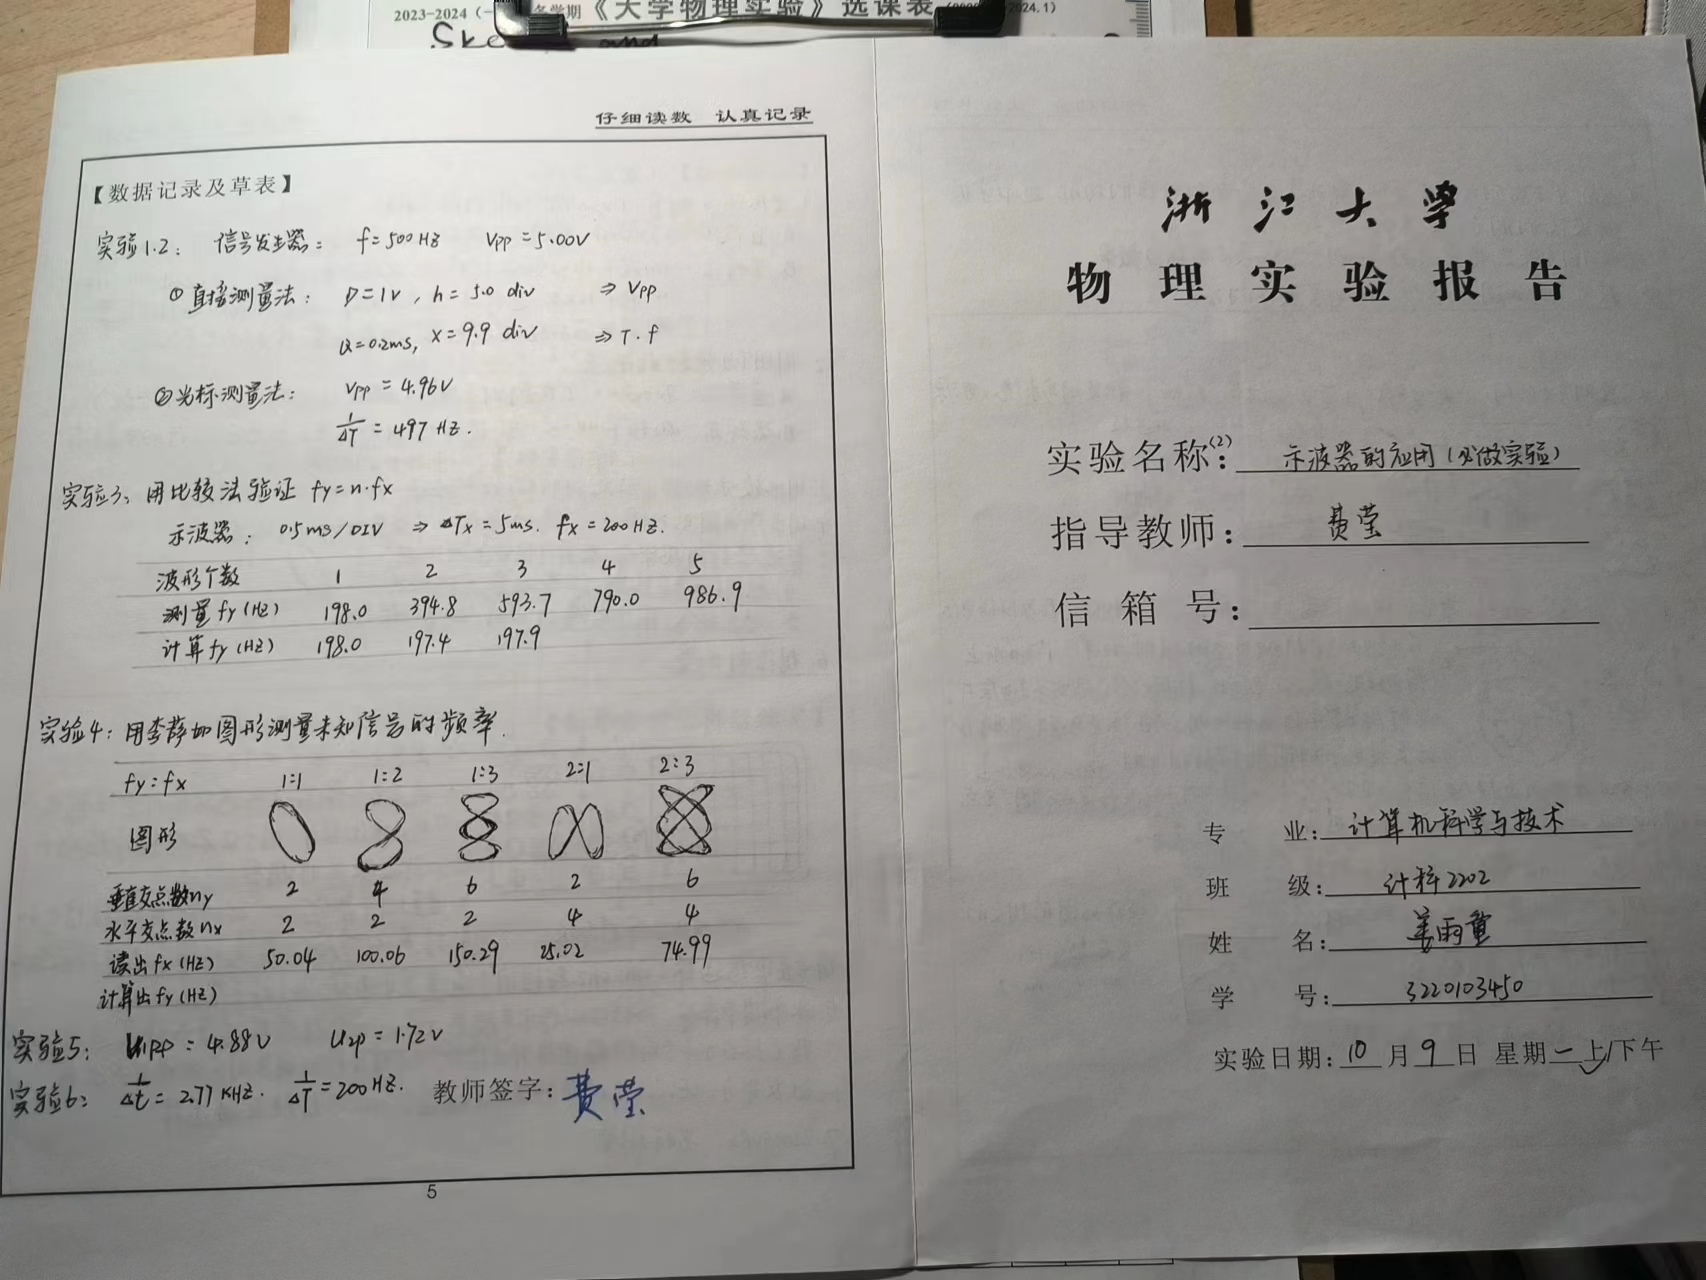 2023-2024(
学期《大学物理实验》选课表
2024.1)
and
仔细读数 认真记录
【数据记录及草表】
实验1.2: 信号发生器: f=500HZ Vpp=5.00V
①直接测量法: D=1V, h=5.0 div ⇒ Vpp
Q=0.2ms, x=9.9 div ⇒ T.f
②光标测量法: Vpp=4.96V
1/ΔT = 497 HZ.
实验3: 用比较法验证 fy=n·fx
示波器: 0.5ms/DIV ⇒ ΔTx=5ms. fx=200HZ.
波形个数 1 2 3 4 5
测量fy(HZ) 198.0 394.8 593.7 790.0 986.9
计算fy(HZ) 198.0 197.4 197.9
实验4: 用李萨如图形测量未知信号的频率.
fy:fx 1:1 1:2 1:3 2:1 2:3
图形
垂直交点数ny 2 4 6 2 6
水平交点数nx 2 2 2 4 4
读出fx(HZ) 50.04 100.06 150.29 25.02 74.99
计算出fy(HZ)
实验5: U1PP=4.88V U2P=1.72V
实验6: 1/Δt=2.77KHZ. 1/ΔT=200HZ. 教师签字: 费莹
5
浙江大学
物理实验报告
实验名称(2): 示波器的应用(必做实验)
指导教师: 费莹
信箱号:
专业: 计算机科学与技术
班级: 计科2202
姓名: 姜雨童
学号: 3220103450
实验日期: 10 月 9 日 星期一 上/下午